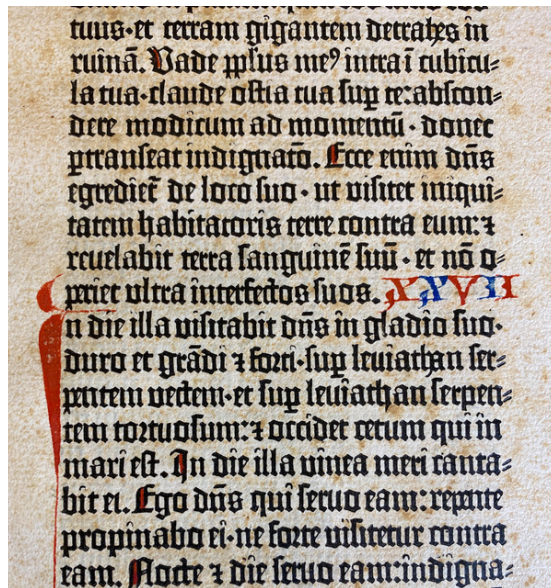 tuus·et terram gigantem detrahes in
ruinā. Vade ppl̄us meꝰ intra ī cubicu⸗
la tua·claude ostia tua sup̄ te:abscon⸗
dere modicum ad momentū·donec
ꝑtranseat indignatō. Ecce enim dn̄s
egrediet̄ de loco suo·ut visitet iniqui⸗
tatem habitatoris terre contra eum:⁊
revelabit terra sanguinē suū·et nō o⸗
periet ultra interfectos suos. XXVII
In die illa visitabit dn̄s in gladio suo·
duro et grādi ⁊ forti·sup̄ leviathan ser⸗
pentem vectem·et sup̄ leviathan serpen⸗
tem tortuosum:⁊ occidet cetum qui in
mari est. In die illa vinea meri canta⸗
bit ei. Ego dn̄s qui servo eam:repente
propinabo ei·ne forte visitetur contra
eam. Nocte ⁊ die servo eam:indigna⸗